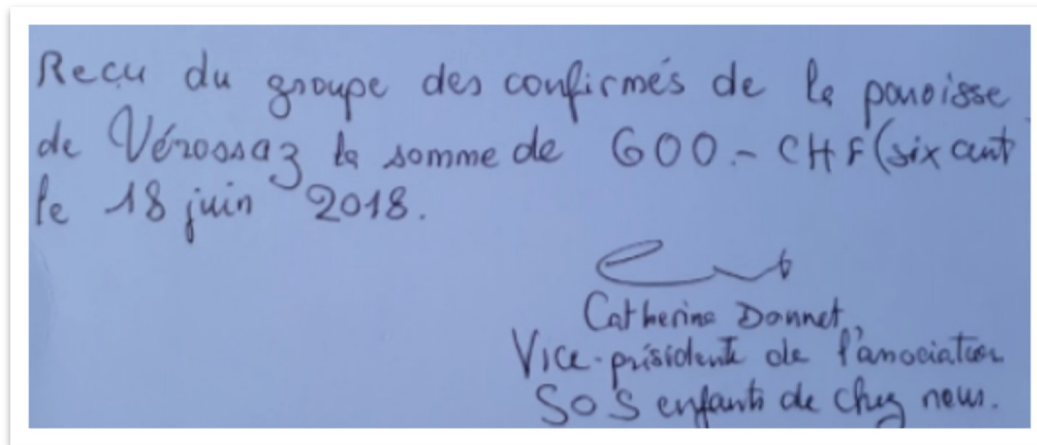 Reçu du groupe des confirmés de la paroisse
de Vérossaz la somme de 600.- CHF (six cent
le 18 juin 2018.
Catherine Donnet,
Vice-présidente de l'association
SOS enfants de chez nous.